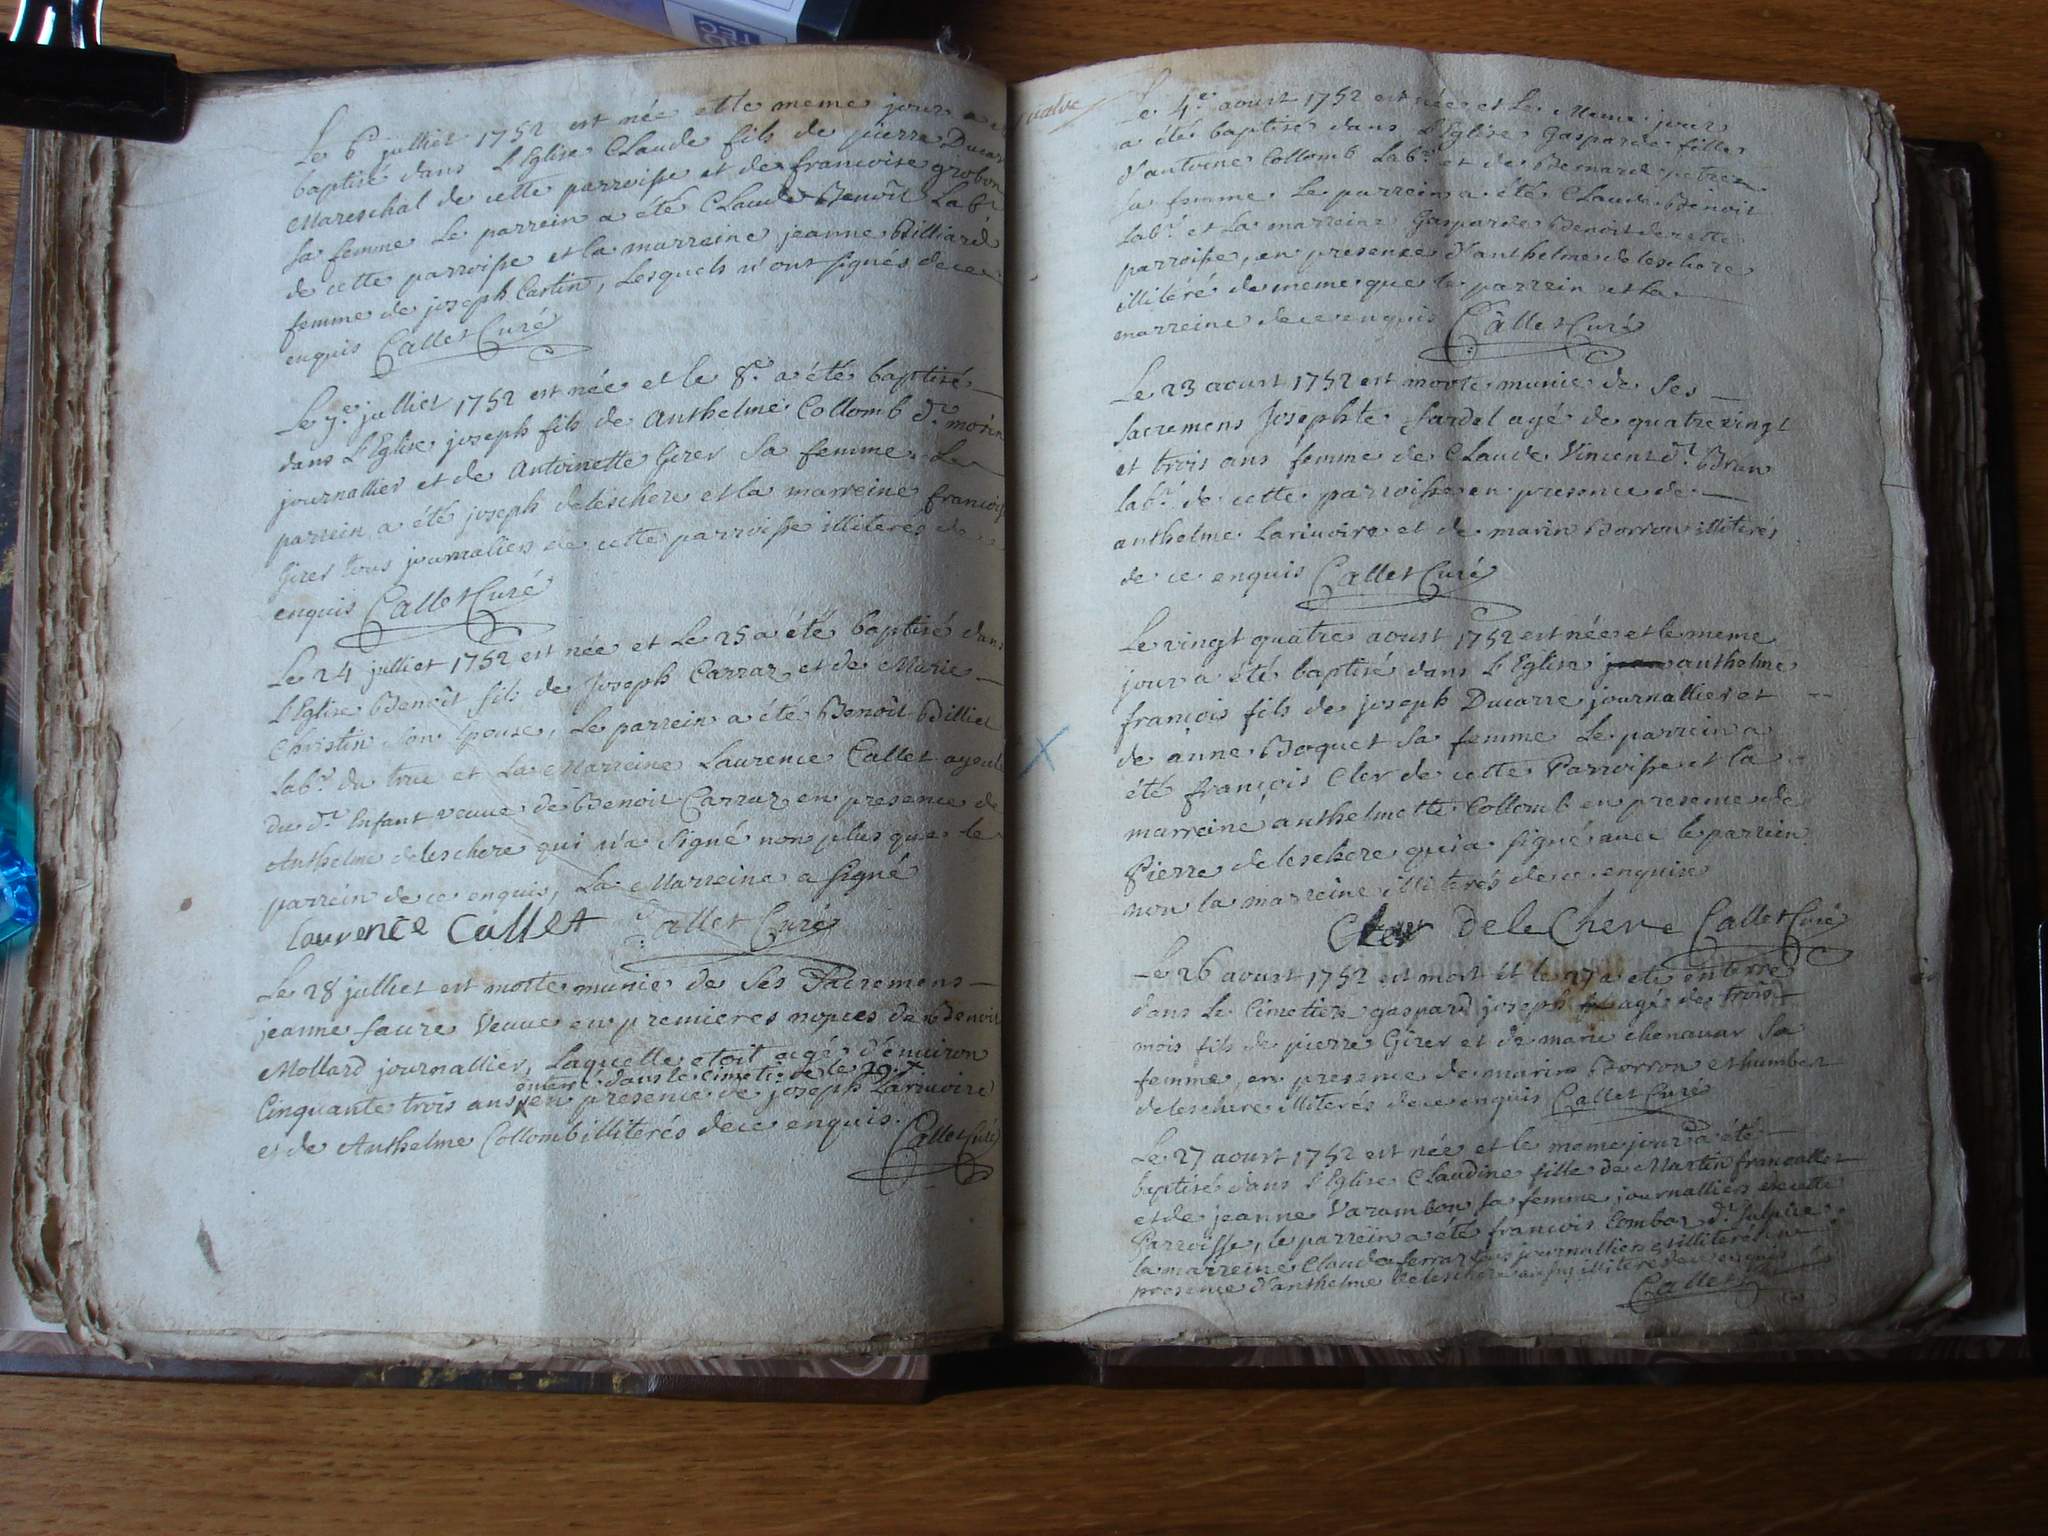 Le 6e julliet 1752 est née et le meme jour a été
baptisé dans l'Eglise Claude fils de pierre Ducar
Mareschal de cette parroisse et de francoise grobon
sa femme Le parrein a été Claude Benoît Labr
de cette parroisse et la marreine jeanne Billiard
femme de joseph Cartin, Lesquels n'ont signés de ce
enquis Callet Curé
Le 7e julliet 1752 est née et le 8e a été baptisé
dans l'Eglise joseph fils de Anthelme Collomb dt morin
journallier et de Antoinette Girer sa femme. Le
parrein a été joseph deleschere et la marreine francoise
Girer tous journaliers de cette parroisse illiterés de ce
enquis Callet Curé
Le 24 julliet 1752 est née et Le 25 a été baptisé dans
l'Eglise Benoît fils de Joseph Carraz et de Marie
Christin son Epouse, Le parrein a été Benoît Billiet
labr du truc et La Marreine Laurence Callet ayeule
du dt Enfant veuve de Benoit Carraz en presence de
Anthelme deleschere qui n'a signé non plus que le
parrein de ce enquis, La Marreine a signé
laurence Callet Callet Curé
Le 28 julliet est morte munie de ses Sacremens
jeanne faure Veuve en premieres nopces de Benoit
Mollard journallier, Laquelle etoit agée d'environ
enterré dans le cimetiere le 29
Cinquante trois ans en presence de joseph Lariuoire
et de Anthelme Collomb illiterés de ce enquis. Callet Curé
Le 4e aoust 1752 est née et Le Meme jour
a été baptisé dans l'Eglise Gasparde fille
d'antoine Collomb Labr et de Bernarde petrez
sa femme. Le parrein a été Claude Benoit
labr et La marreine Gasparde Benoit de cette
parroisse, en presence d'anthelme deleschere
illitéré de meme que le parrein et la
marreine de ce enquis Callet Curé
Le 23 aoust 1752 est morte munie de Ses
Sacremens Josephte fardel agé de quatre vingt
et trois ans femme de Claude Vincent dt Brun
labr de cette parroisse en presence de
anthelme Lariuoire et de marin Borron illiterés
de ce enquis Callet Curé
Le vingt quatre aoust 1752 est née et le meme
jour a été baptisé dans l'Eglise jean anthelme
françois fils de joseph Ducarre journallier et
de anne Boquet sa femme Le parrein a
été françois Cler de cette Parroisse et la
marreine anthelmette Collomb en presence de
Pierre deleschere qui a signé avec le parrein
non la marreine illiterés de ce enquise
Cler De le Chere Callet Curé
Le 26 aoust 1752 est mort et le 27 a eté enterré
dans Le Cimetiere gaspard joseph agé de trois
mois fils de pierre Girer et de marie chenauar Sa
femme, en presence de marin Borron et humber
deleschere illiterés de ce enquis Callet Curé
Le 27 aoust 1752 est née et le meme jour a été
baptisé dans l'Eglise Claudine fille de Martin francallet
et de jeanne Varambon sa femme journalliers de cette
Parroisse, le parrein a été francois Combaz dt Sulpice
la marreine Clauda ferraz tous journalliers et illiterés en
presence d'anthelme deleschere aussy illiteré de ce enquis
Callet